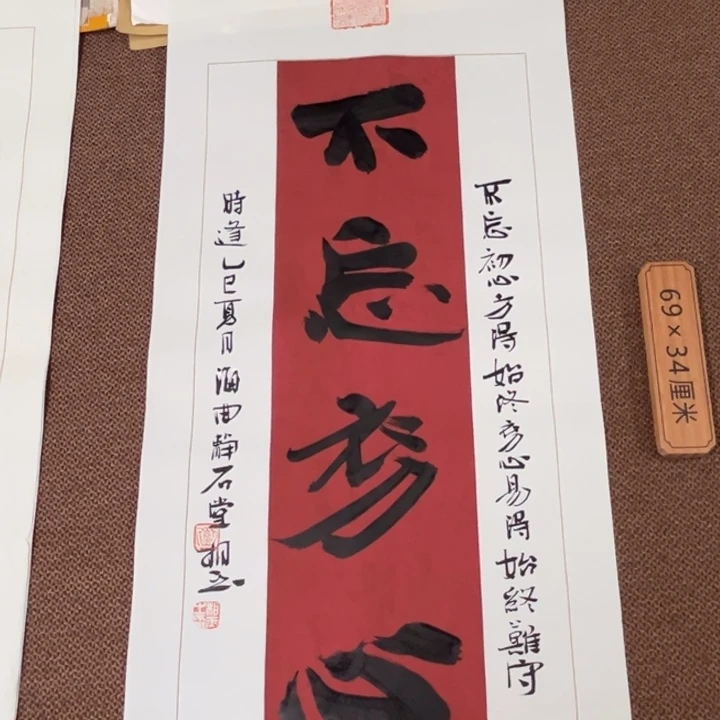 不忘初心
不忘初心方得始终初心易得始終難守
時逢乙巳夏月海曲静石堂
69×34厘米